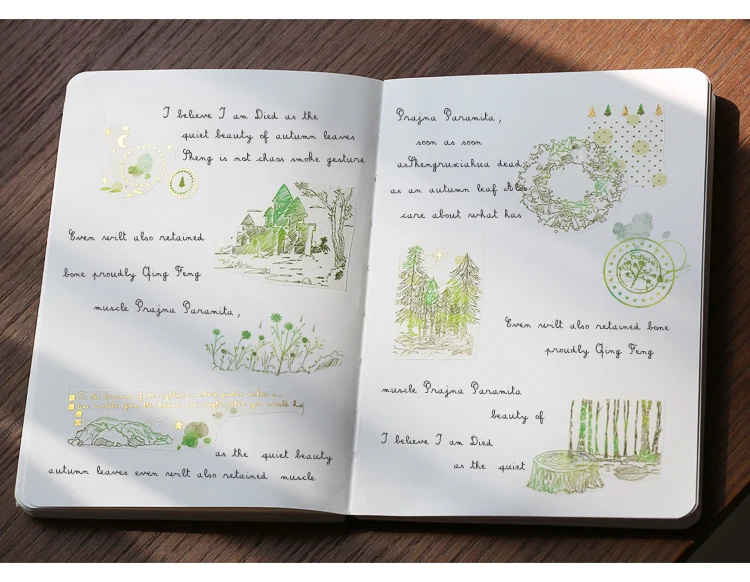 I believe I am Died as the
quiet beauty of autumn leaves
Sheng is not chaos smoke gesture
Even wilt also retained
bone proudly Qing Feng
muscle Prajna Paramita,
as the quiet beauty
autumn leaves even wilt also retained muscle
Prajna Paramita,
soon as soon
asShengruxiahua dead,
as an autumn leaf
care about what has
Even wilt also retained bone
proudly Qing Feng
muscle Prajna Paramita
beauty of
I believe I am Died
as the quiet